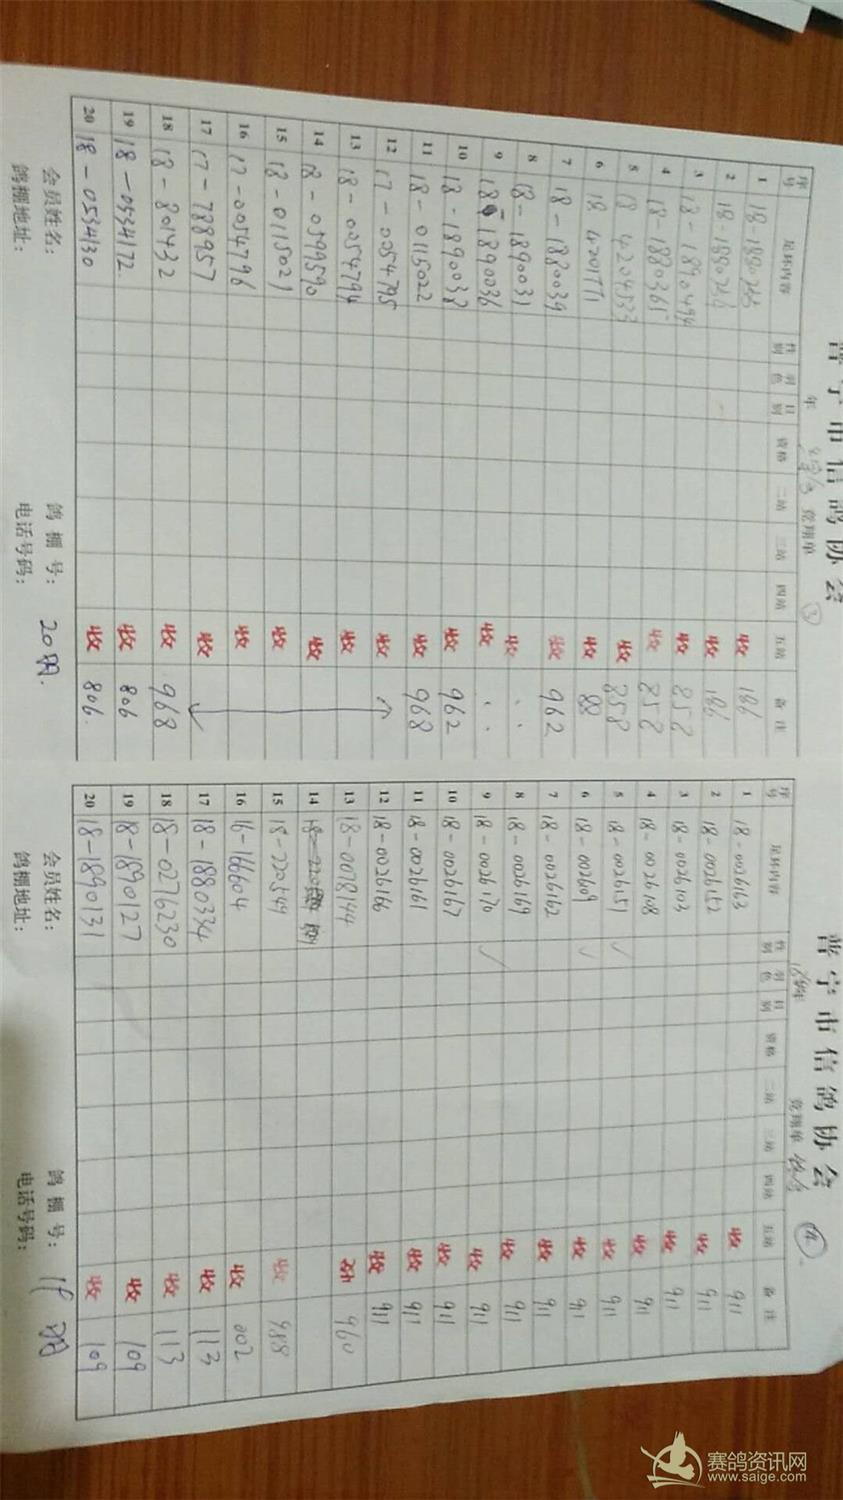 普宁市信鸽协会
年 竞翔单 ③
序号 足环内容 性别 羽色 目别 资格 二站 三站 四站 五站 备注
1 18-1890266 收 186
2 18-1890268 收 186
3 18-1890494 收 858
4 18-1880365 收 858
5 18 4204533 收 858
6 18 4201771 收 88
7 18-1880039 收 962
8 18-1890031 收 〃
9 18-1890036 收 〃
10 18-1890038 收 962
11 18-0115022 收 968
12 17-0054795 收
13 18-0054794 收
14 18-0599590 收
15 18-0115021 收
16 17-0054796 收
17 17-788957 收
18 18-801432 收 968
19 18-0534172 收 806
20 18-0534130 收 806
会员姓名: 鸽棚号: 20羽.
鸽棚地址: 电话号码:
普宁市信鸽协会
年 竞翔单 ④
序号 足环内容 性别 羽色 目别 资格 二站 三站 四站 五站 备注
1 18-0026163 收 911
2 18-0026152 收 911
3 18-0026103 收 911
4 18-0026108 收 911
5 18-0026151 ✓ 收 911
6 18-002609 ✓ 收 911
7 18-0026162 收 911
8 18-0026169 收 911
9 18-0026170 ✓ 收 911
10 18-0026167 收 911
11 18-0026161 收 911
12 18-0026166 收 911
13 18-0078144 收 960
14
15 18-220549 收 988
16 16-166604 收 002
17 18-1880334 收 113
18 18-0276230 收 113
19 18-1890127 收 109
20 18-1890131 收 109
会员姓名: 鸽棚号: 19羽
鸽棚地址: 电话号码:
赛鸽资讯网
www.saige.com